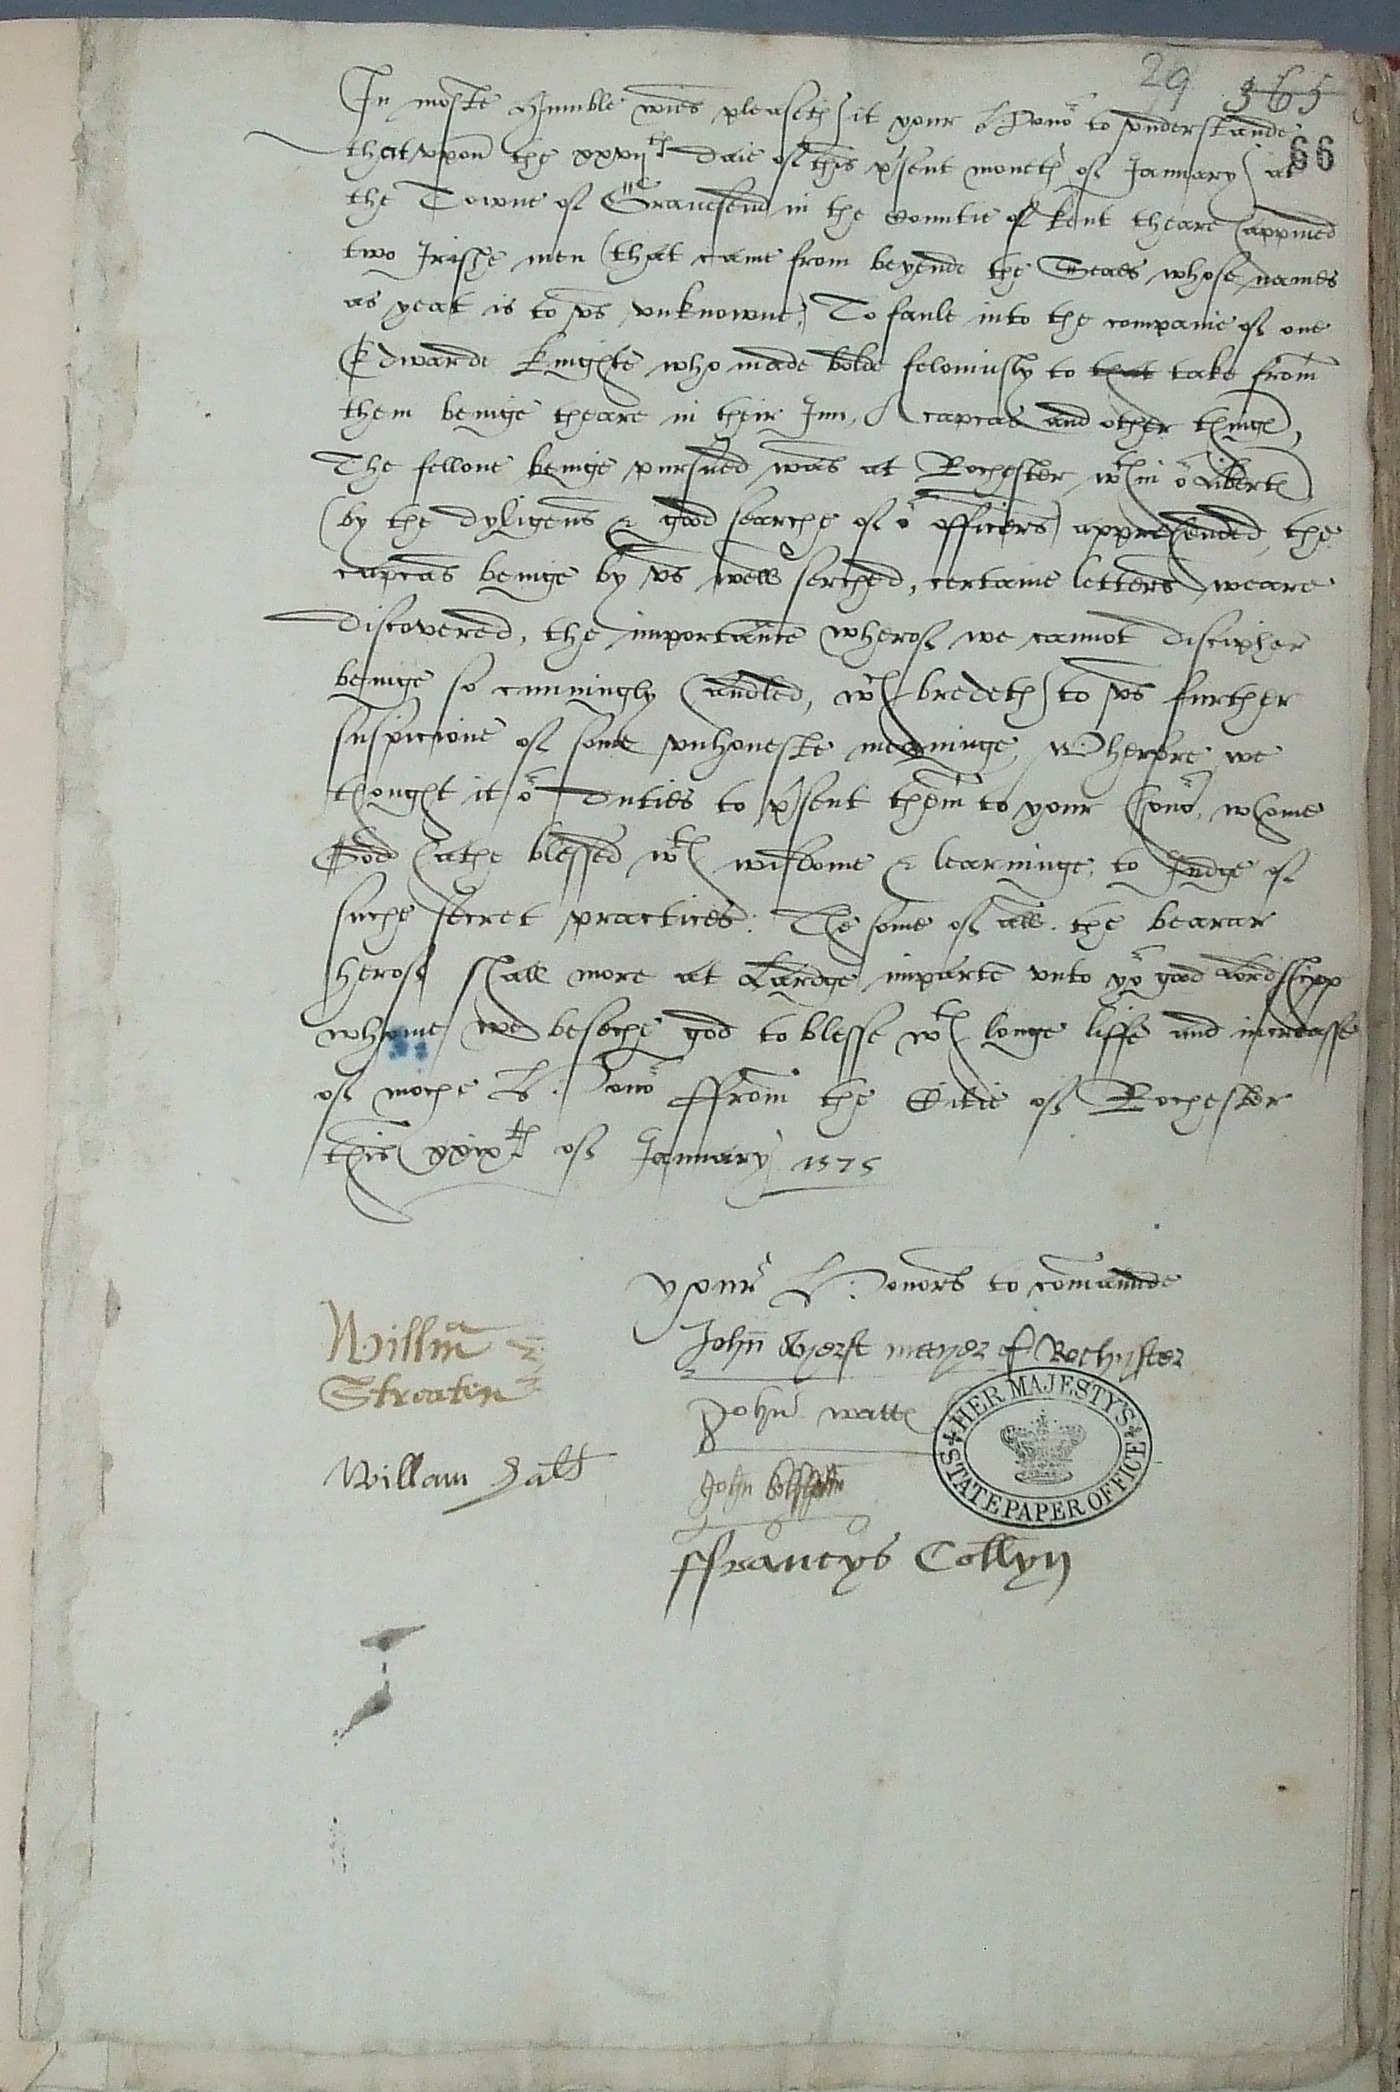 29 365
66
In moste Humble wies pleaseth it your L Honor to vnderstande
that vpon the xxvijth daie of this pˀsent moneth of January at
the Towne of Gravesend in the Countie of Kent theare happined
two Irishe men (that came from beyende the Seaes whose names
as yeat is to vs vnknowne) To faule into the companie of one
Edwarde Knighte who made bolde feloniusly to that take from
them beinge theare in their Inn, A capcas and other things,
The fellone beinge pursued was at Rochester wthin or liberts
(by the dyligens & good searche of or officers) apprehended, the
capcas beinge by vs well serched, certaine letters weare
discovered, the importance wherof we cannot discipher
beinge so cunningly handled, wch bredeth to vs further
suspicione of some vnhoneste meaninge, Wherfore we
thought it or duties to pˀsent them to your honor, whome
God hathe blessed wth wisdome & learninge, to Judge of
suche secret practices: The some of all the bearar
herof shall more at Lardge imparte vnto yor good Lordshipp
whome we beseche god to blesse wth longe liffe and increasse
of moche L. Honor ffrom the Citie of Rochester
this xxixth of January 1575
Your L: Honors to comaunde
Willm
Streatin
John Wyerst meeyer of Rochyster
John watts
Willam Hall
John
ffrancys Collyn
HER MAJESTY'S
STATE PAPER OFFICE